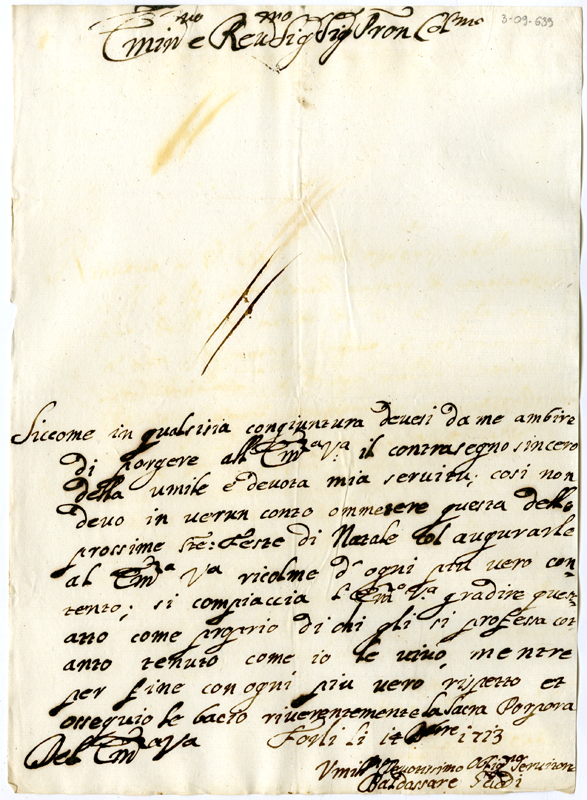 3-09-699
Emin.mo e Reu.mo Sig. Sig. Pron Col.mo
Siccome in qualsisia congiuntura deuesi da me ambire
di porgere all' Em.za V.a il contrasegno sincero
della umile e deuota mia seruitù; così non
deuo in uerun conto ommetere questa delle
prossime S.te Feste di Natale col augurarle
al Em.za V.a ricolme d'ogni più uero con=
tento; si compiaccia l'Em.a V.a gradire quest'
atto come proprio di chi gli si professa cot
anto tenuto come io le uiuo, mentre
per fine con ogni più uero rispetto et
ossequio le bacio riuerentemente la Sacra Porpora
Del Em.za V.a Forlì li 1713
Vmil.mo Deuotissimo Oblig.mo Seruitore
Baldassare